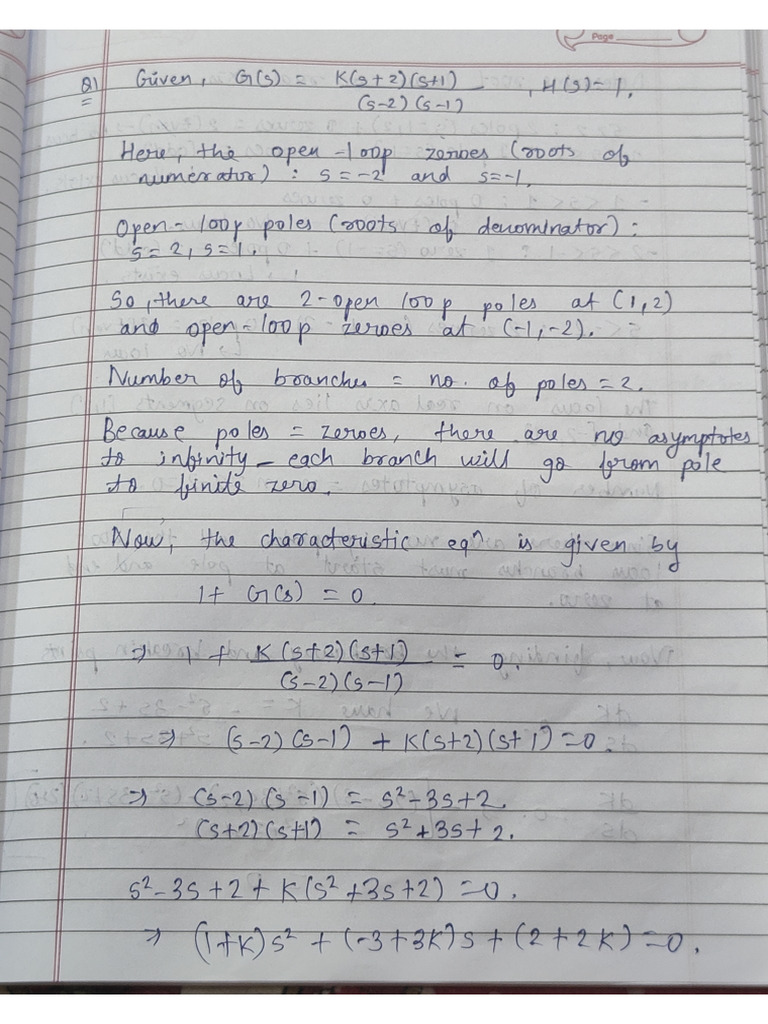 Page
Q1 Given, G(s) = K(s+2)(s+1) , H(s)=1.
(s-2)(s-1)
Here, the open-loop zeroes (roots of
numerator) : s=-2 and s=-1.
Open-loop poles (roots of denominator) :
s=2, s=1.
So, there are 2-open loop poles at (1,2)
and open-loop zeroes at (-1,-2).
Number of branches = no. of poles = 2.
Because poles = zeroes, there are no asymptotes
to infinity - each branch will go from pole
to finite zero.
Now, the characteristic eqⁿ is given by
1+ G(s) = 0.
⇒ 1 + K(s+2)(s+1) = 0.
(s-2)(s-1)
⇒ (s-2)(s-1) + K(s+2)(s+1)=0.
⇒ (s-2)(s-1) = s²-3s+2.
(s+2)(s+1) = s²+3s+2.
s²-3s+2+K(s²+3s+2)=0.
⇒ (1+K)s² + (-3+3K)s+(2+2K)=0.